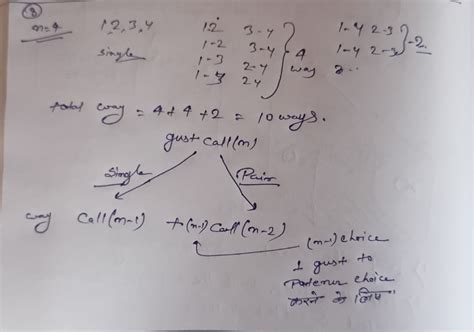 ③
n=4 1,2,3,4 12 3-4 1-4 2-3
single 1-2 3-4 4 way 1-4 2-3 -2
1-3 2-4
1-3 24
total way = 4 + 4 + 2 = 10 ways.
gust call(n)
Single Pair
way Call(n-1) +(n-1) Call(n-2)
(n-1) choice
1 gust to
choice
करने के लिए